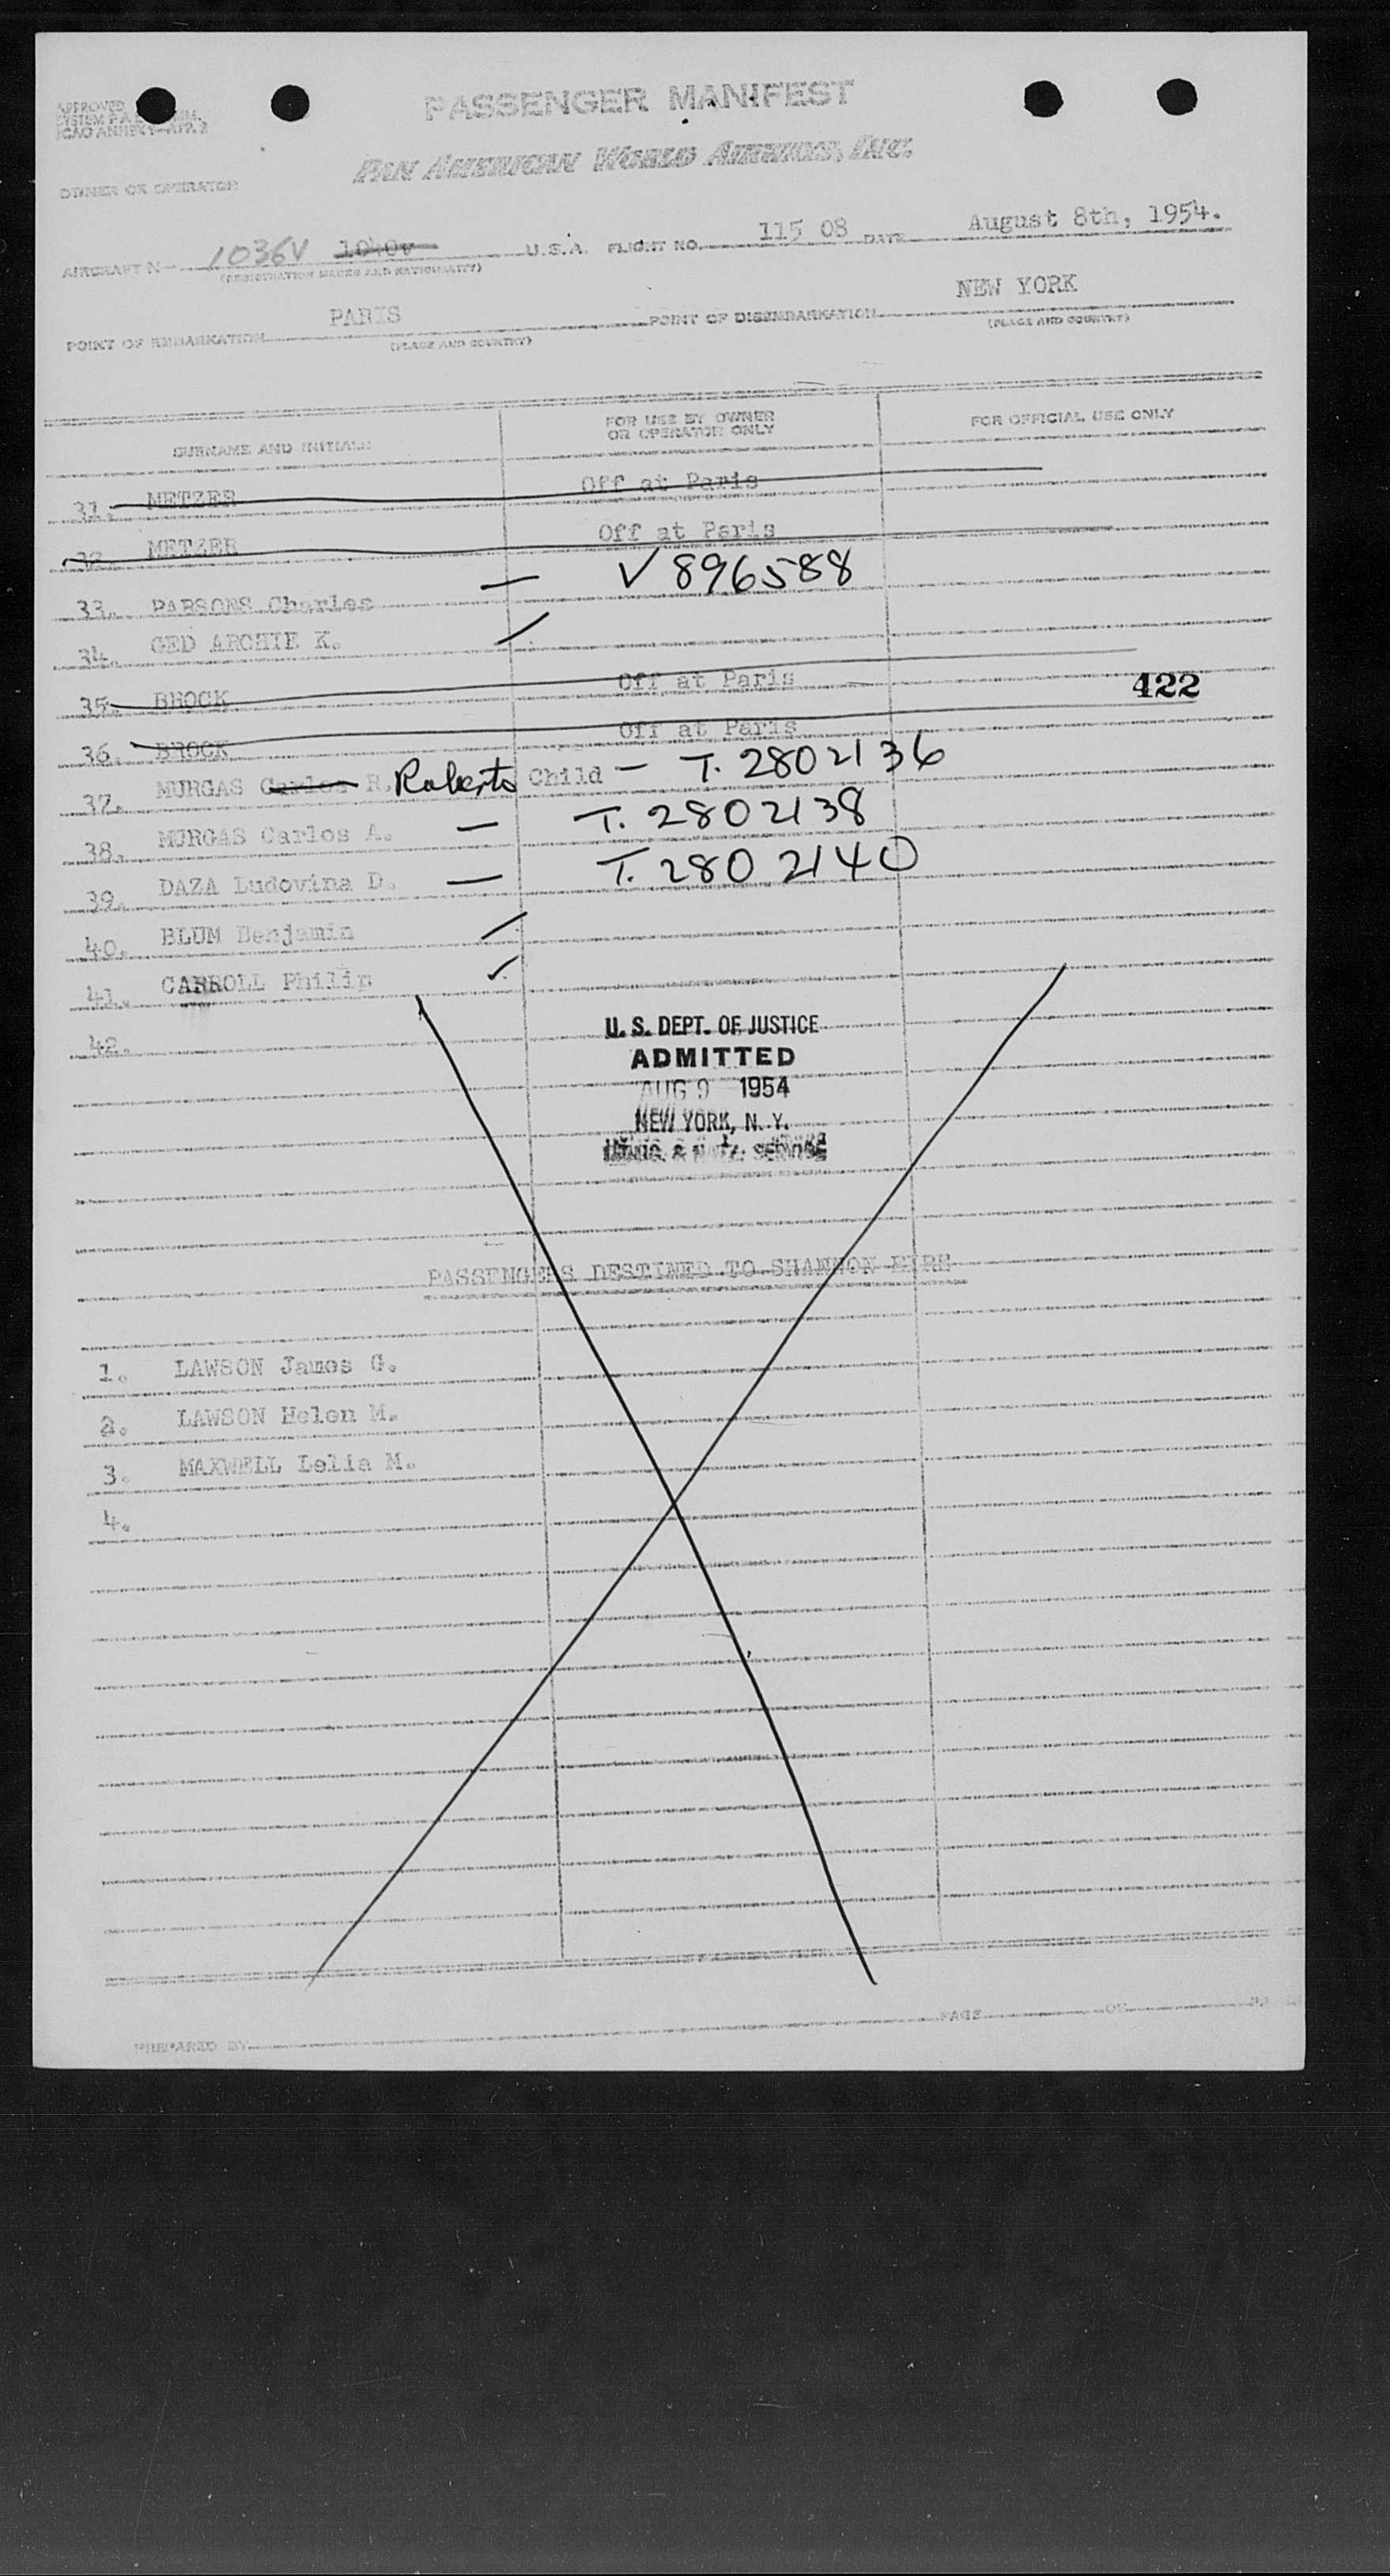 APPROVED
SYSTEM P.A.
ICAO ANNEX 9—APP. 3
PASSENGER MANIFEST
PAN AMERICAN WORLD AIRWAYS, INC.
OWNER OR OPERATOR
AIRCRAFT N— 1036V 1040v U.S.A. FLIGHT NO. 115 08 DATE August 8th, 1954.
(REGISTRATION MARKS AND NATIONALITY)
POINT OF EMBARKATION PARIS POINT OF DISEMBARKATION NEW YORK
(PLACE AND COUNTRY) (PLACE AND COUNTRY)
SURNAME AND INITIALS FOR USE BY OWNER OR OPERATOR ONLY FOR OFFICIAL USE ONLY
31. METZER Off at Paris
32. METZER Off at Paris
33. PARSONS Charles — V896588
34. GED ARCHIE K.
35. BROCK Off at Paris
422
36. BROCK Off at Paris
37. MURGAS Carlos R. Roberto Child — T. 2802136
38. MURGAS Carlos A. — T. 2802138
39. DAZA Ludovina D. — T. 2802140
40. BLUM Benjamin
41. CARROLL Philip ✓
42.
U. S. DEPT. OF JUSTICE
ADMITTED
AUG 9 1954
NEW YORK, N. Y.
IMMIG. & NATZ. SERVICE
PASSENGERS DESTINED TO SHANNON EIRE
1. LAWSON James G.
2. LAWSON Helen M.
3. MAXWELL Lelia M.
4.
PREPARED BY PAGE OF